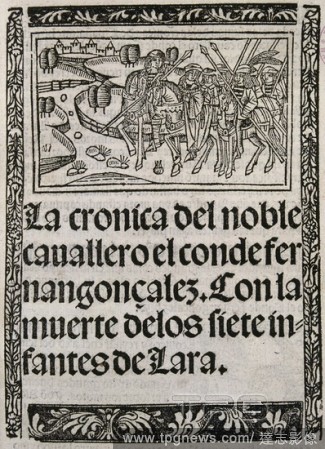 La cronica del noble
cauallero el conde fer
nangonçalez. Con la
muerte delos siete in-
fantes de Lara.
www.tpgnews.com / 達志影像